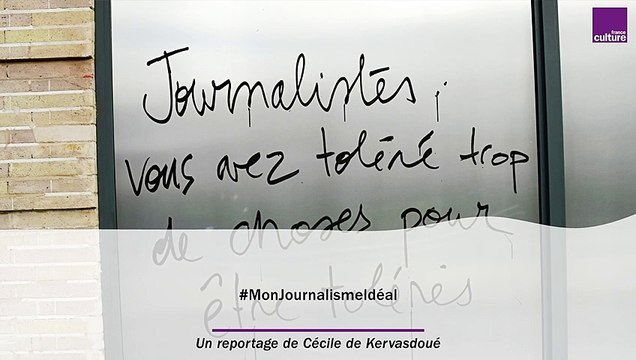 france
culture
Journalistes :
vous avez toléré trop
de choses pour
être tolérés
#MonJournalismeIdéal
Un reportage de Cécile de Kervasdoué